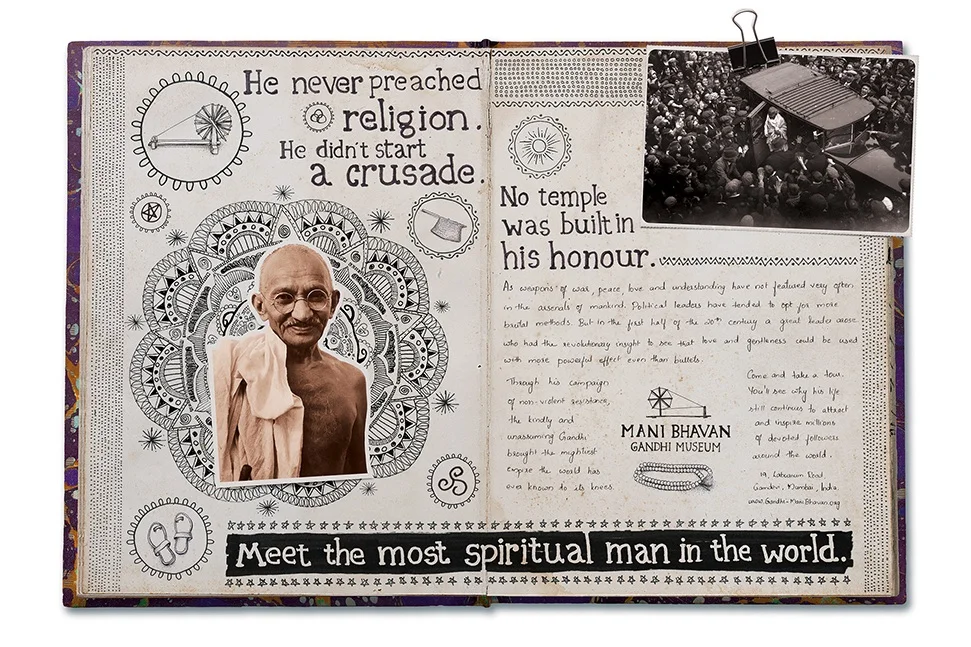 He never preached
religion.
He didn't start
a crusade.
No temple
was built in
his honour.
As weapons of war, peace love and understanding have not featured very often
in the arsenals of mankind. Political leaders have tended to opt for more
brutal methods. But in the first half of the 20th century a great leader arose
who had the revolutionary insight to see that love and gentleness could be used
with more powerful effect even than bullets.
Through his campaign
of non-violent resistance,
the kindly and
unassuming Gandhi
brought the mightiest
empire the world has
ever known to its knees.
MANI BHAVAN
GANDHI MUSEUM
Come and take a tour.
You'll see why his life
still continues to attract
and inspire millions
of devoted followers
around the world.
19, Laburnum Road,
Gamdevi, Mumbai, India.
www.Gandhi-ManiBhavan.org
Meet the most spiritual man in the world.